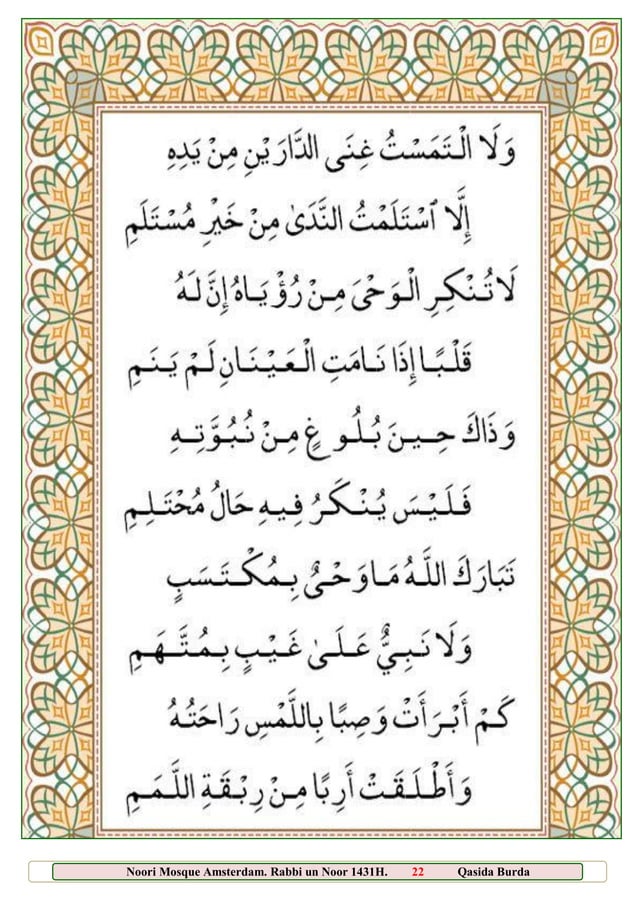 وَلَا الْتَمَسْتُ غِنَى الدَّارَيْنِ مِنْ يَدِهِ
إِلَّا ٱسْتَلَمْتُ النَّدَىٰ مِنْ خَيْرِ مُسْتَلَمِ
لَا تُنْكِرِ الْوَحْيَ مِنْ رُؤْيَاهُ إِنَّ لَهُ
قَلْبًا إِذَا نَامَتِ الْعَيْنَانِ لَمْ يَنَمِ
وَذَاكَ حِينَ بُلُوغٍ مِنْ نُبُوَّتِهِ
فَلَيْسَ يُنْكَرُ فِيهِ حَالُ مُحْتَلِمِ
تَبَارَكَ اللَّهُ مَا وَحْيٌ بِمُكْتَسَبٍ
وَلَا نَبِيٌّ عَلَىٰ غَيْبٍ بِمُتَّهَمِ
كَمْ أَبْرَأَتْ وَصِبًا بِاللَّمْسِ رَاحَتُهُ
وَأَطْلَقَتْ أَرِبًا مِنْ رِبْقَةِ اللَّمَمِ
Noori Mosque Amsterdam. Rabbi un Noor 1431H. 22 Qasida Burda